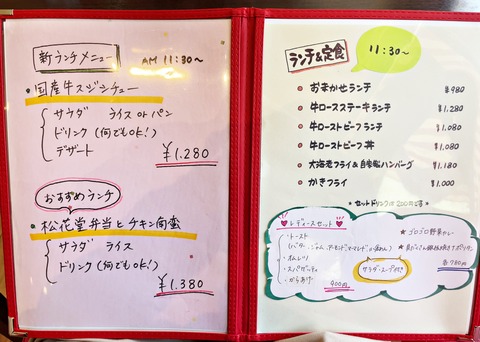 新ランチメニュー
AM 11:30〜
・国産牛スジシチュー
サラダ ライス or パン
ドリンク (何でもOK!)
デザート
¥1.280
おすすめランチ
・松花堂弁当とチキン南蛮
サラダ ライス
ドリンク (何でもOK!)
¥1.380
ランチ&定食
11:30〜
おまかせランチ ¥980
牛ロースステーキランチ ¥1.280
牛ローストビーフランチ ¥1.080
牛ローストビーフ丼 ¥1.080
大海老フライ&自家製ハンバーグ ¥1.180
かきフライ ¥1.000
*セットドリンクは200円です*
レディースセット
・トースト
・オムレツ
・スパゲッティ
・からあげ
900円
★ ゴロゴロ野菜カレー
★ 具だくさん鉄板焼きナポリタン
各780円
サラダ・スープ付き